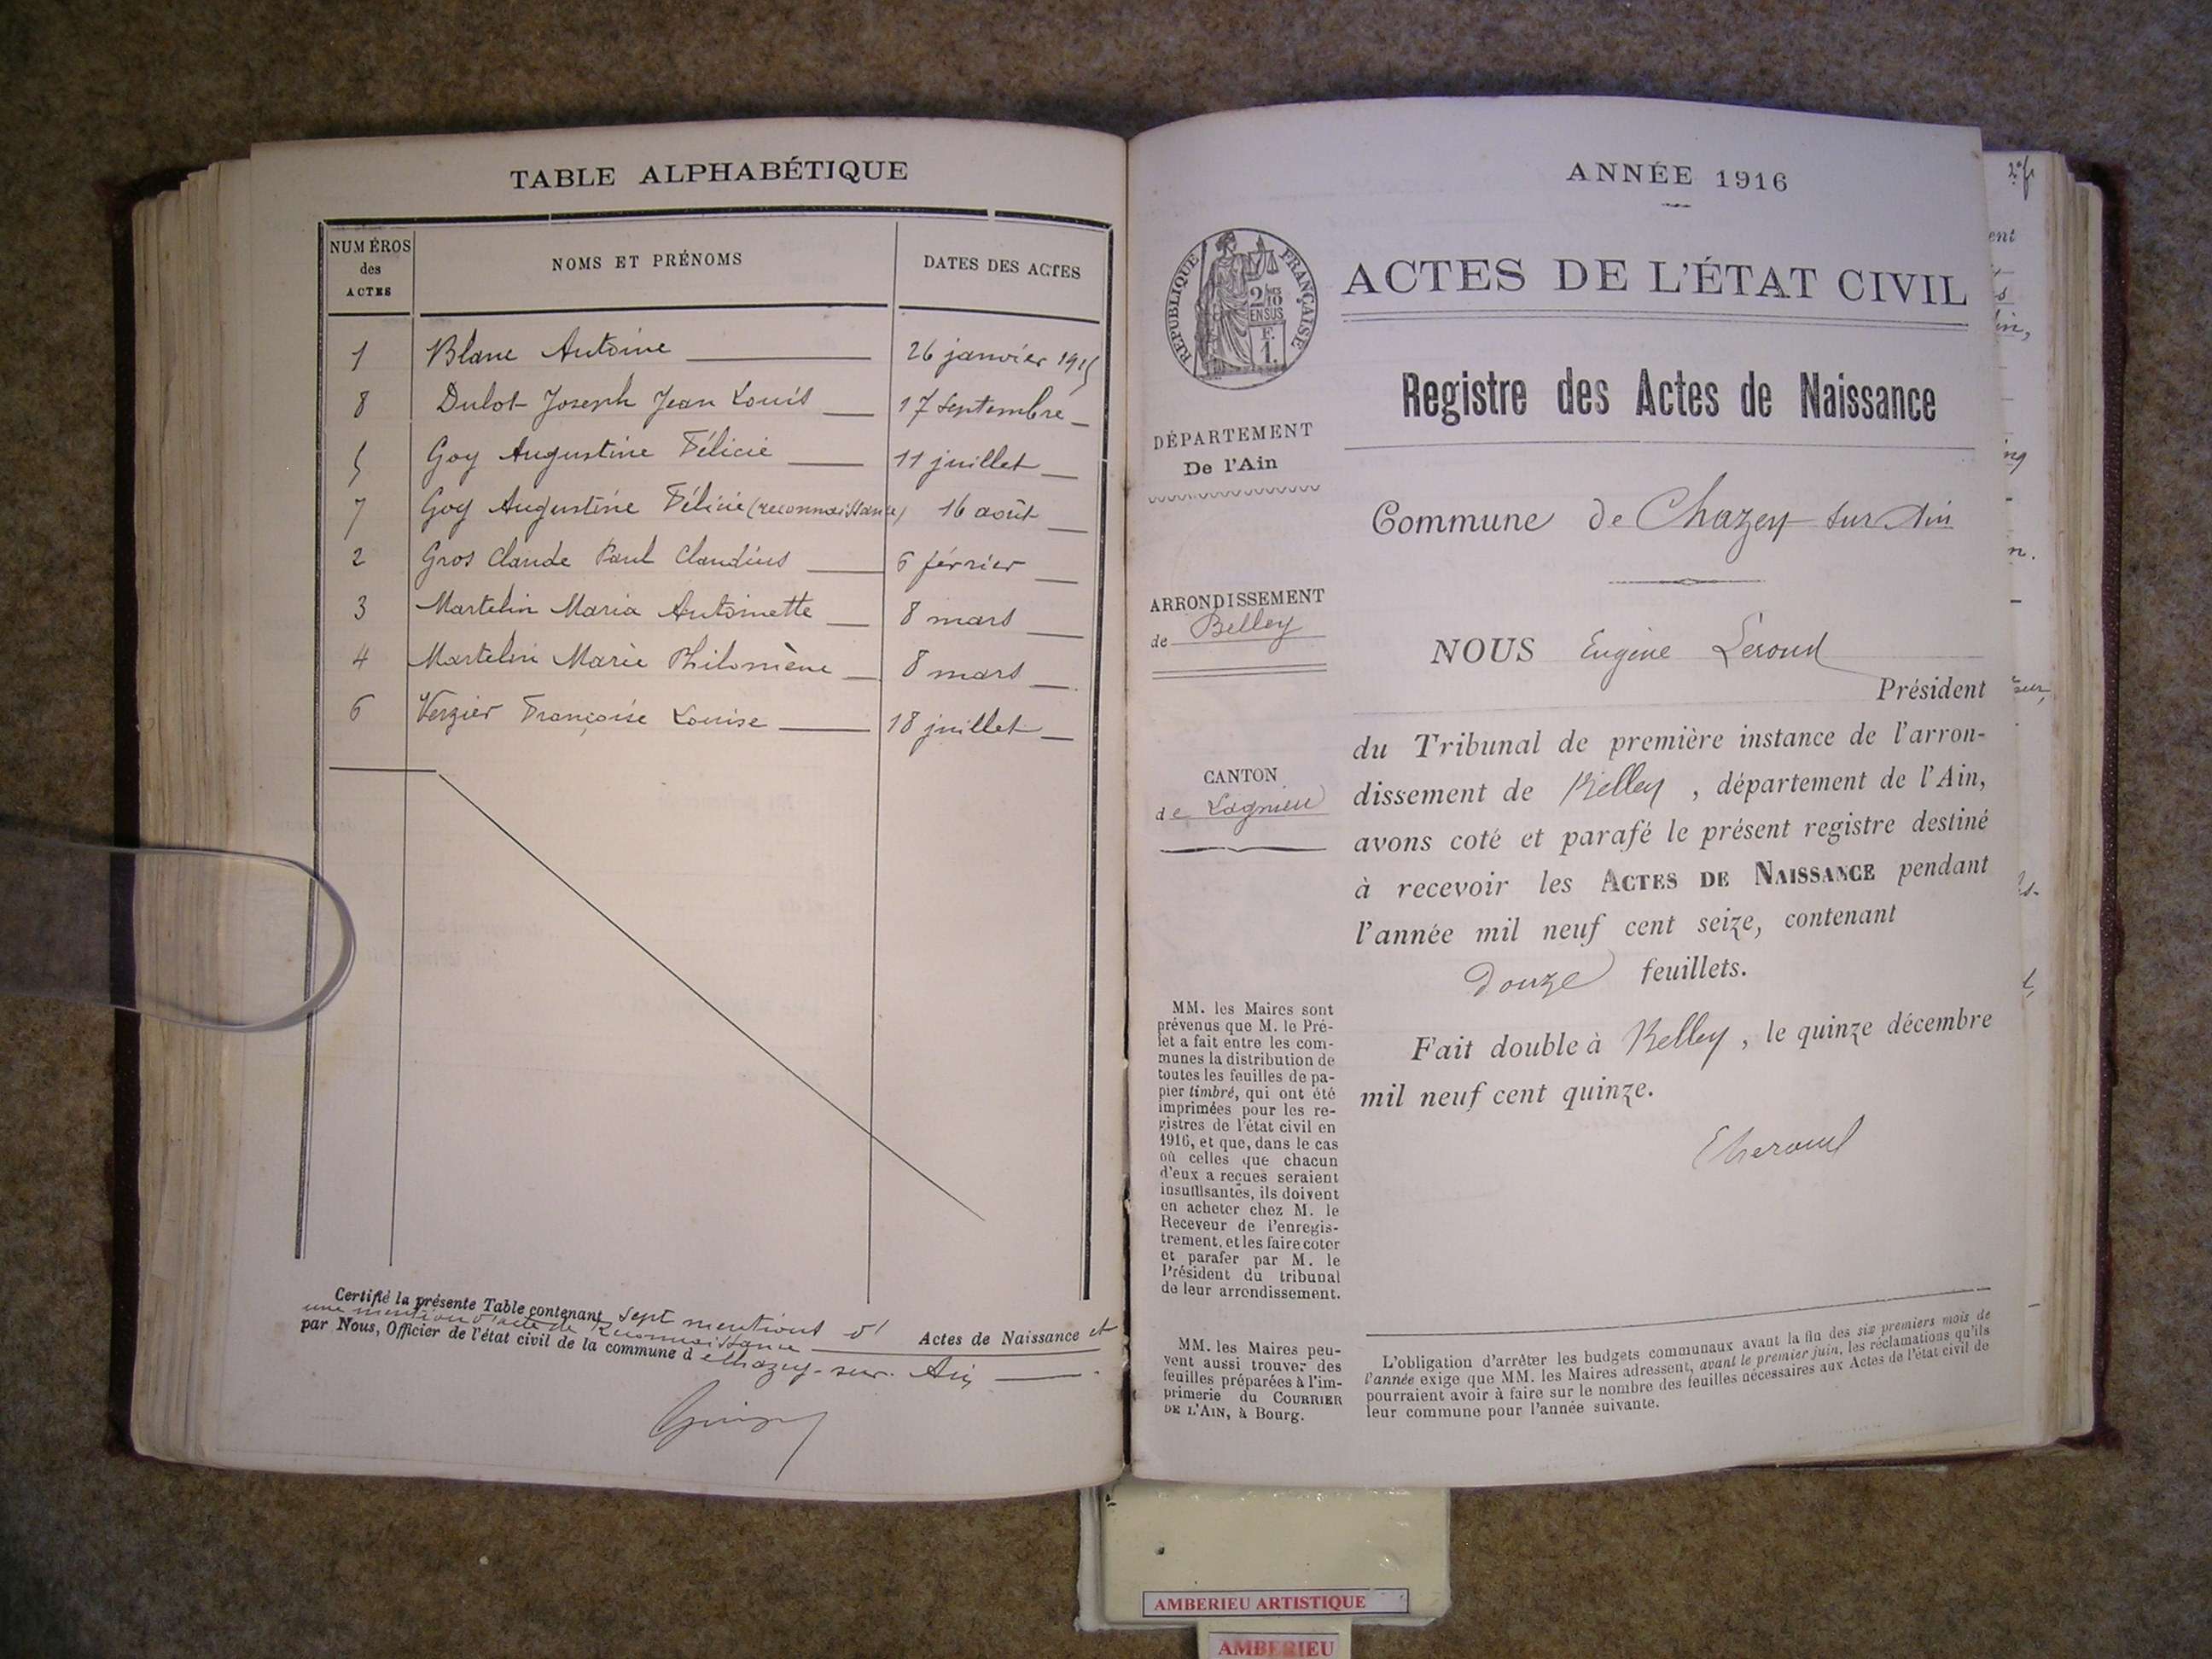 TABLE ALPHABÉTIQUE
NUMÉROS des ACTES
NOMS ET PRÉNOMS
DATES DES ACTES
1 Blanc Antoine 26 janvier 1915
8 Dulot Joseph Jean Louis 17 septembre
5 Goy Augustine Félicie 11 juillet
7 Goy Augustine Félicie (reconnaissance) 16 août
2 Gros Claude Paul Claudius 6 février
3 Martelin Maria Antoinette 8 mars
4 Martelin Marie Philomène 8 mars
6 Verzier Françoise Louise 18 juillet
Certifié la présente Table contenant sept mentions d' Actes de Naissance et
une mention d'acte de Reconnaissance
par Nous, Officier de l'état civil de la commune de Chazey-sur-Ain
ANNÉE 1916
RÉPUBLIQUE FRANÇAISE
2/10 EN SUS
F. 1.
ACTES DE L'ÉTAT CIVIL
Registre des Actes de Naissance
DÉPARTEMENT
De l'Ain
Commune de Chazey sur Ain
ARRONDISSEMENT
de Belley
CANTON
de Lagnieu
NOUS Eugène Léroud
Président
du Tribunal de première instance de l'arron-
dissement de Belley, département de l'Ain,
avons coté et parafé le présent registre destiné
à recevoir les ACTES DE NAISSANCE pendant
l'année mil neuf cent seize, contenant
douze feuillets.
Fait double à Belley, le quinze décembre
mil neuf cent quinze.
MM. les Maires sont
prévenus que M. le Pré-
fet a fait entre les com-
munes la distribution de
toutes les feuilles de pa-
pier timbré, qui ont été
imprimées pour les re-
gistres de l'état civil en
1916, et que, dans le cas
où celles que chacun
d'eux a reçues seraient
insuffisantes, ils doivent
en acheter chez M. le
Receveur de l'enregis-
trement, et les faire coter
et parafer par M. le
Président du tribunal
de leur arrondissement.
MM. les Maires peu-
vent aussi trouver des
feuilles préparées à l'im-
primerie du COURRIER
DE L'AIN, à Bourg.
L'obligation d'arrêter les budgets communaux avant la fin des six premiers mois de
l'année exige que MM. les Maires adressent, avant le premier juin, les réclamations qu'ils
pourraient avoir à faire sur le nombre des feuilles nécessaires aux Actes de l'état civil de
leur commune pour l'année suivante.
AMBERIEU ARTISTIQUE
AMBERIEU